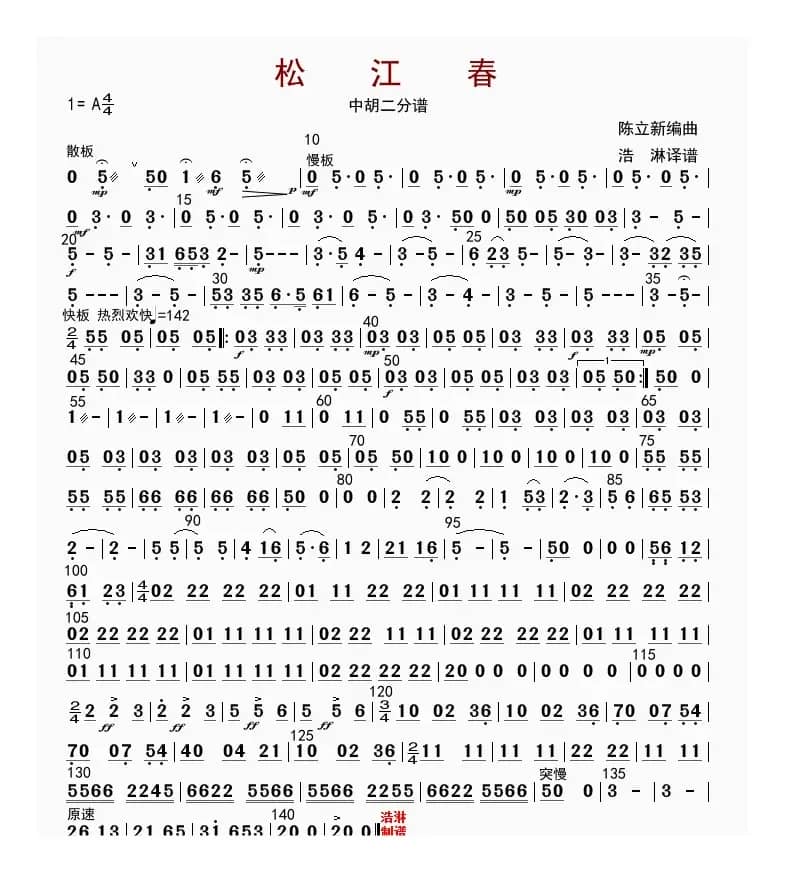 松 江 春
1= A 4/4
中胡二分谱
陈立新编曲
浩 淋译谱
散板 10 慢板
0 5 50 1 6 5 | 0 5·0 5· | 0 5·0 5· | 0 5·0 5· | 0 5·0 5· |
mp mf p mf mp
15
0 3·0 3· | 0 5·0 5· | 0 3·0 5· | 0 3·50 0 | 50 05 30 03 | 3 - 5 - |
mf
20 25
5 - 5 - | 31 653 2 - | 5 - - - | 3·5 4 - | 3 - 5 - | 6 23 5 - | 5 - 3 - | 3 - 32 35 |
f mp
30 35
5 - - - | 3 - 5 - | 53 35 6·5 61 | 6 - 5 - | 3 - 4 - | 3 - 5 - | 5 - 3 - |
快板 热烈欢快 =142 40
2/4 55 05 | 05 05 |: 03 33 | 03 33 | 03 03 | 05 05 | 03 03 | 03 33 | 05 05 |
f mp f mp
45 50 1
05 50 | 33 0 | 05 55 | 03 03 | 05 05 | 03 03 | 05 05 | 03 03 | 05 50 :| 50 0 |
f
55 60 65
1 - | 1 - | 1 - | 1 - | 0 11 | 0 11 | 0 55 | 0 55 | 03 03 | 03 03 | 03 03 |
70 75
05 03 | 03 03 | 05 03 | 03 05 | 05 05 | 100 | 100 | 100 | 100 | 55 55 |
80 85
55 55 | 66 66 | 66 66 | 50 0 | 0 0 | 2 2 | 2 2 | 1 53 | 2·3 | 5 6 | 65 53 |
90 95
2 - | 2 - | 5 5 | 5 5 | 4 16 | 5·6 | 1 2 | 21 16 | 5 - | 5 - | 50 0 | 0 0 | 56 12 |
100
61 23 | 4/4 02 22 22 22 | 01 11 11 11 | 02 22 22 22 | 01 11 11 11 |
105
02 22 22 22 | 01 11 11 11 | 02 22 11 11 | 02 22 22 22 | 01 11 11 11 |
110 115
01 11 11 11 | 01 11 11 11 | 02 22 22 22 | 20 0 0 0 | 0 0 0 0 | 0 0 0 0 |
120
2/4 2 2 3 | 2 2 3 | 5 5 6 | 5 5 6 | 3/4 10 02 36 | 10 02 36 | 70 07 54 |
ff ff ff ff
125
70 07 54 | 40 04 21 | 10 02 36 | 2/4 11 11 | 11 11 | 11 11 | 11 11 |
130 突慢 135
5566 2245 | 6622 5566 | 5566 2255 | 6622 5566 | 50 0 | 3 - | 3 - |
原速 140
26 13 | 21 65 | 31 653 | 20 0 | 20 0 ‖
浩淋
制谱